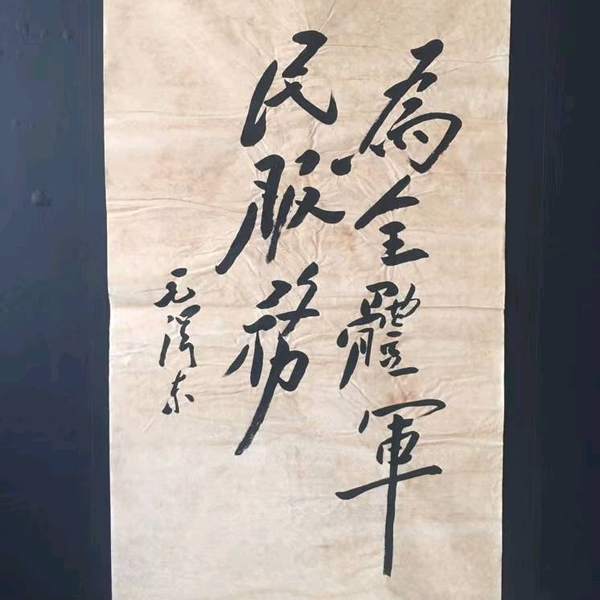 為全體軍
民服務
毛澤东